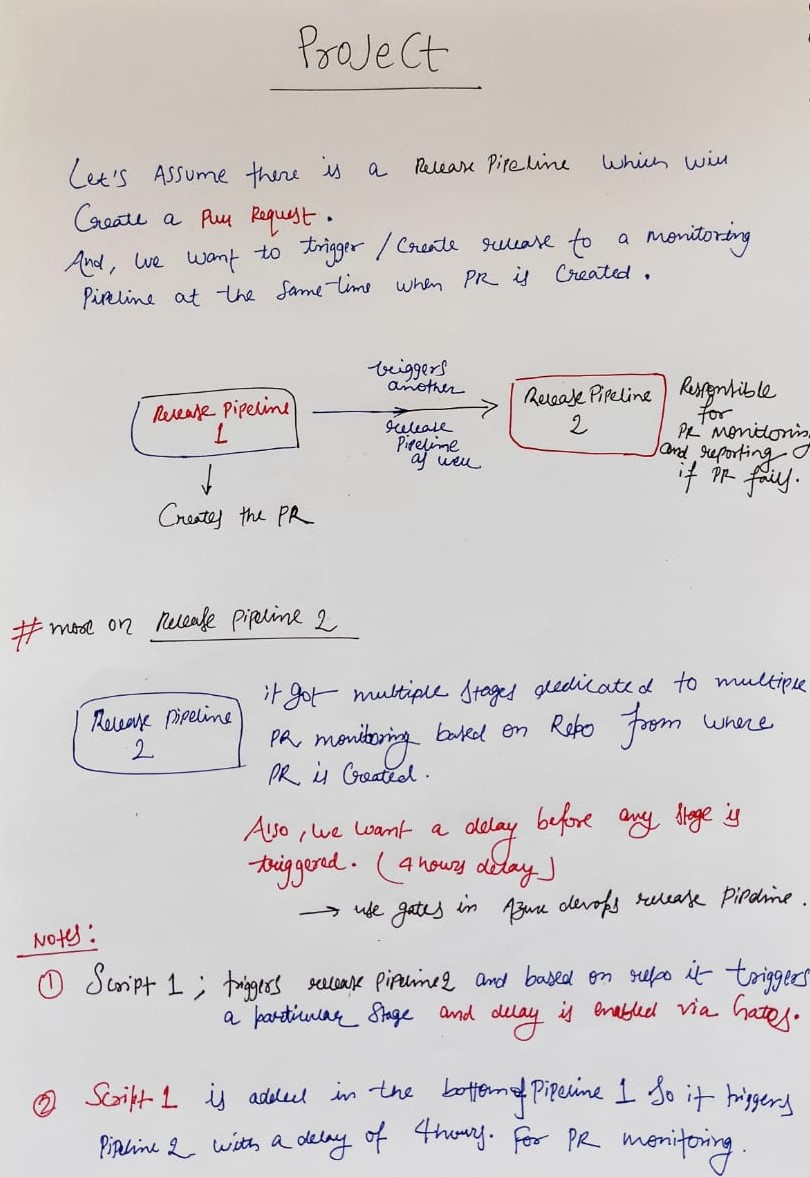 Project
Let's Assume there is a Release Pipeline which will
Create a Pull Request.
And, we want to trigger / Create release to a monitoring
Pipeline at the same time when PR is Created.
Release Pipeline
1
Creates the PR
triggers
another
release
Pipeline
as well
Release Pipeline
2
Responsible
for
PR monitoring
and reporting
if PR fails.
# more on Release Pipeline 2
Release Pipeline
2
it got multiple stages dedicated to multiple
PR monitoring based on Repo from where
PR is Created.
Also, we want a delay before any stage is
triggered. (4 hours delay)
→ use gates in Azure devops release Pipeline.
Notes:
① Script 1 ; triggers release pipeline 2 and based on repo it triggers
a particular stage and delay is enabled via Gates.
② Script 1 is added in the bottom of Pipeline 1 So it triggers
Pipeline 2 with a delay of 4 hours. For PR monitoring.